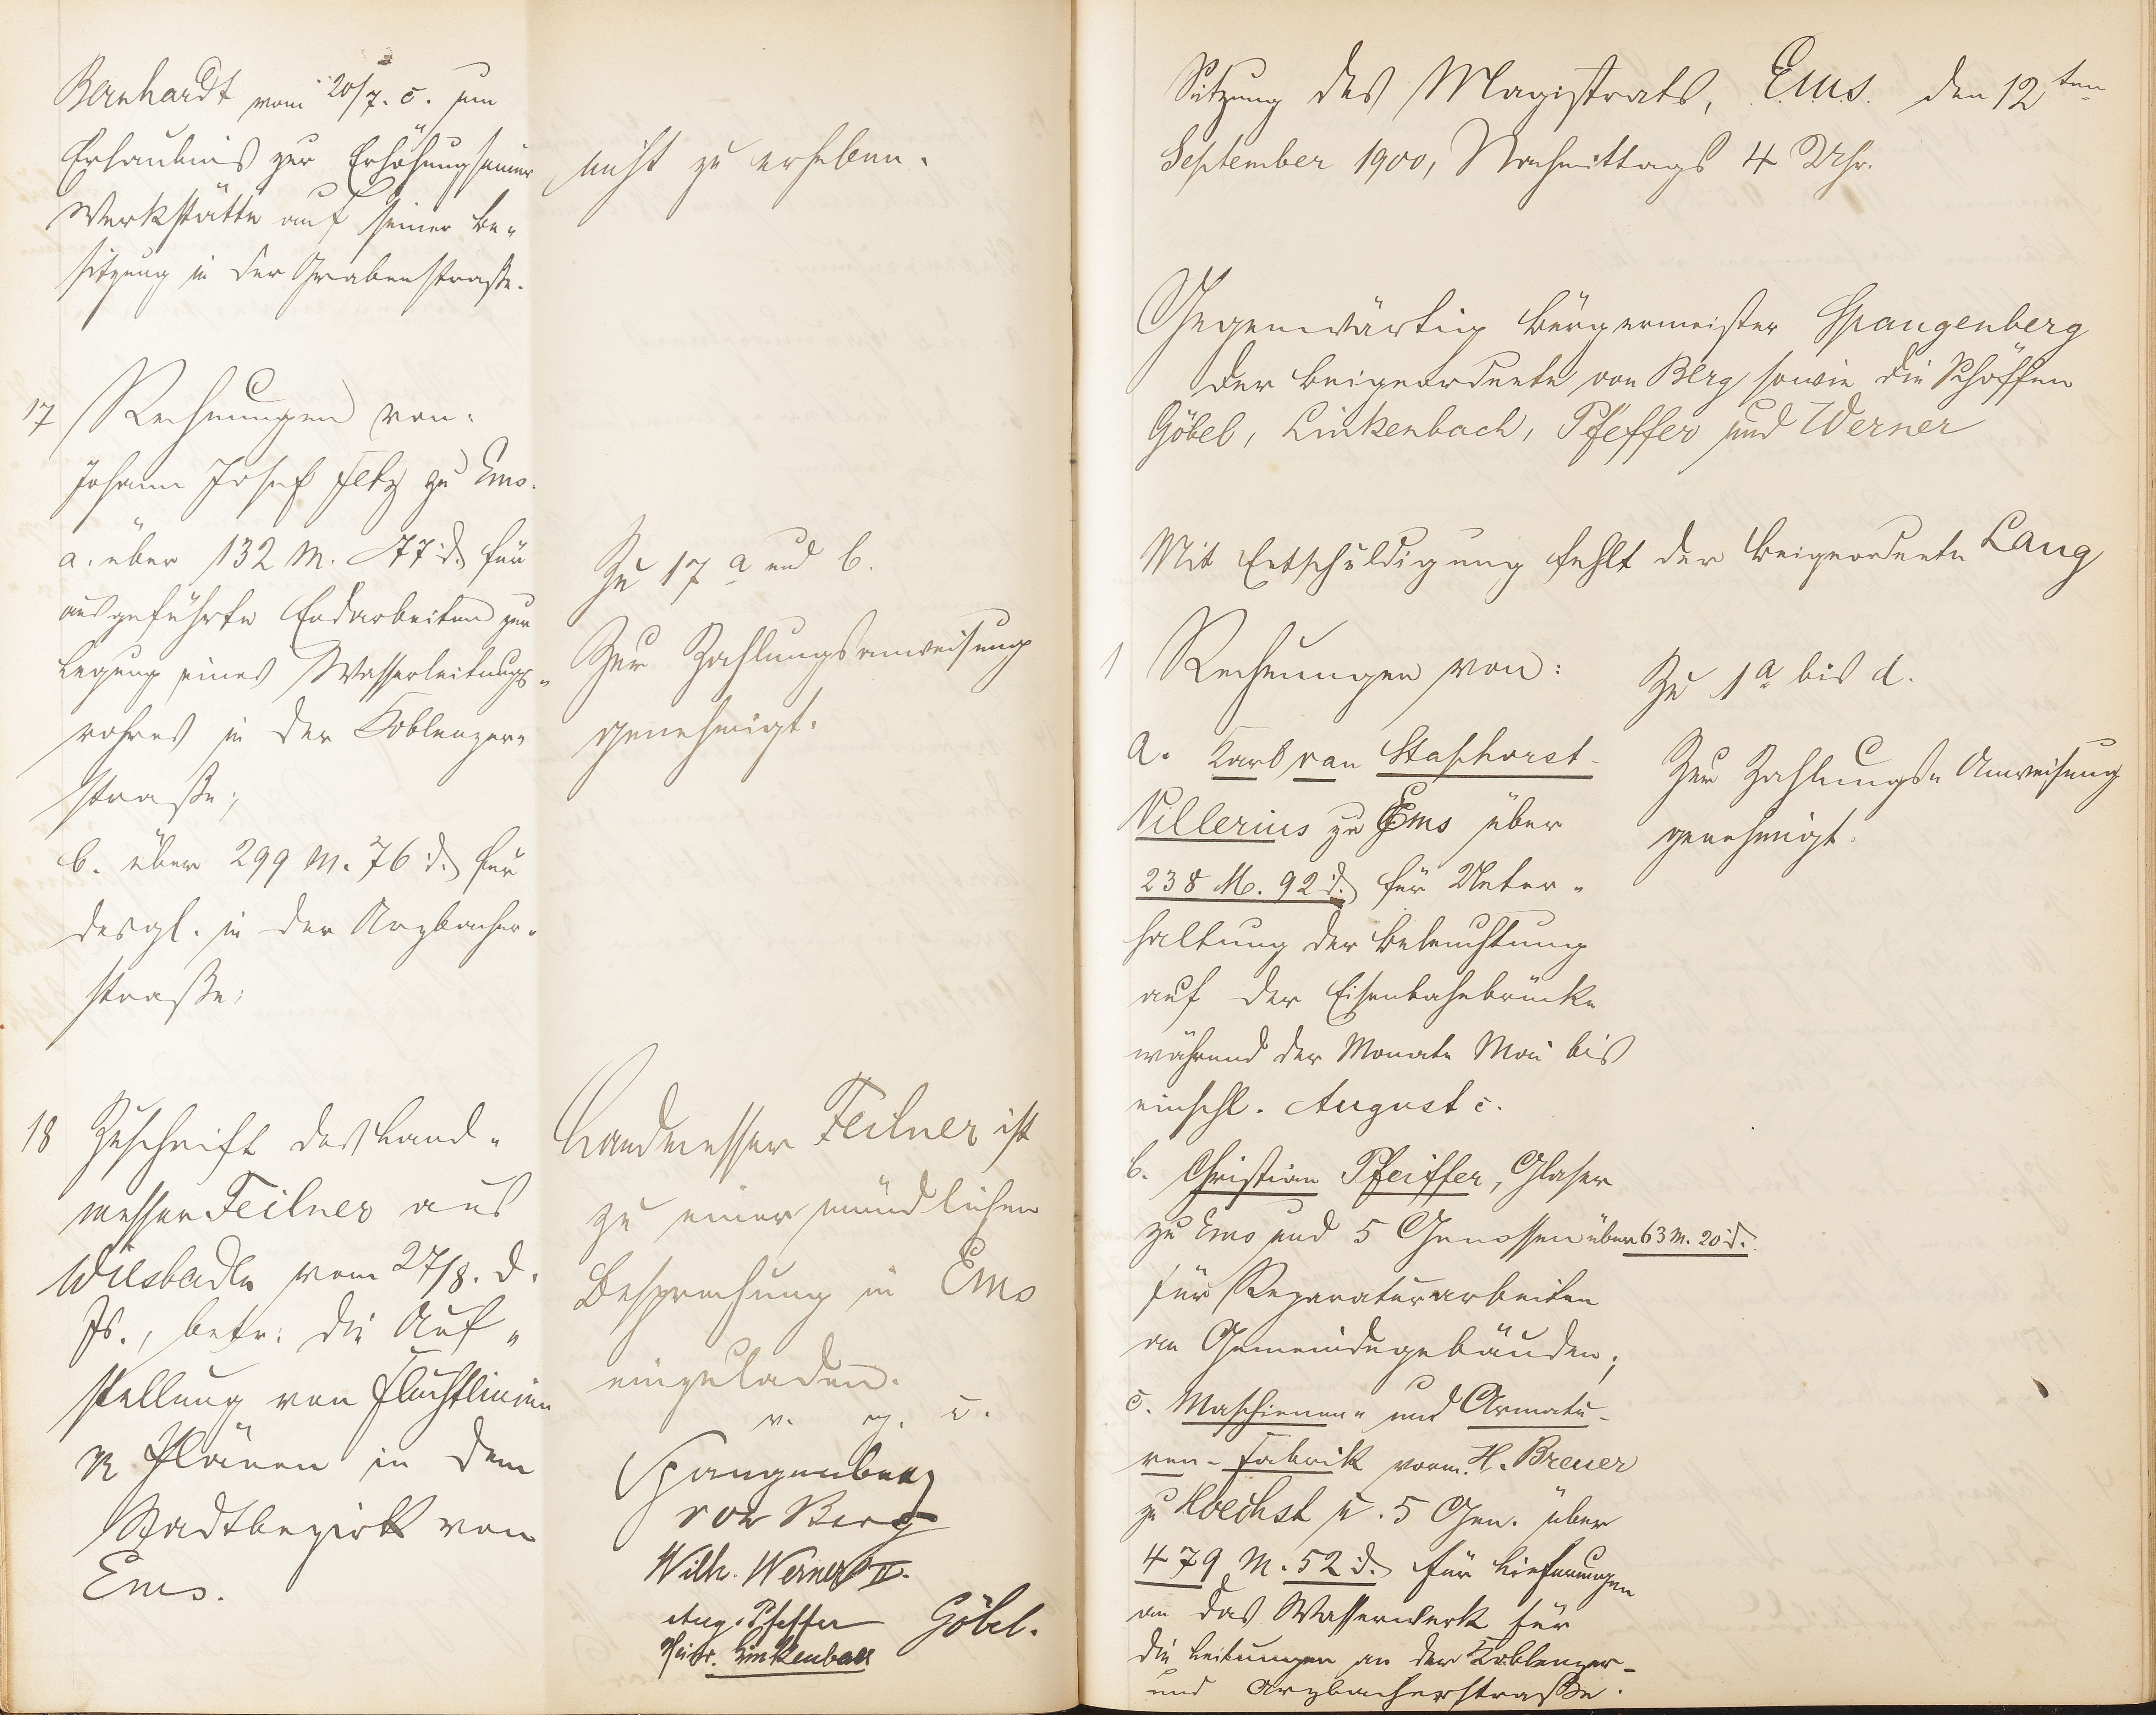 Bernhardt vom 20/7. c. um
Erlaubnis zur Erhöhung seiner
Werkstätte auf seiner Be-
sitzung in der Grabenstraße.
nicht zu erheben.
17 Rechnungen von:
Johann Josef Feltz zu Ems.
a. über 132 M. 77 d. für
ausgeführte Erdarbeiten zur
Legung eines Wasserleitungs-
rohres in der Koblenzer-
straße;
b. über 299 M. 76 d. für
desgl. in der Arzbacher-
straße;
Zu 17 a und b.
Zur Zahlungsanweisung
genehmigt.
18 Zuschrift des Land-
messer Feilner aus
Wiesbaden vom 27/8. d.
Js., betr. die Auf-
stellung von Fluchtlinien
Plänen in dem
Stadtbezirk von
Ems.
Landmesser Feilner ist
zu einer mündlichen
Besprechung in Ems
einzuladen.
v. g. u.
Spangenberg
von Berg
Wilh. Werner II.
Aug. Pfeffer Göbel.
Heinr. Linkenbach
Sitzung des Magistrats, Ems. den 12ten
September 1900, Nachmittags 4 Uhr.
Gegenwärtig Bürgermeister Spangenberg
der Beigeordnete von Berg sowie die Schöffen
Göbel, Linkenbach, Pfeffer und Werner
Mit Entschuldigung fehlt der Beigeordnete Lang
1 Rechnungen von:
a. Karl van Staphorst-
Villerius zu Ems über
238 M. 92 d. für Unter-
haltung der Beleuchtung
auf der Eisenbahnbrücke
während der Monate Mai bis
einschl. August c.
b. Christian Pfeiffer, Glaser
zu Ems und 5 Genossen über 63 M. 20 d.
für Reparaturarbeiten
an Gemeindegebäuden;
c. Maschienen- und Armatu-
ren-Fabrik vorm. H. Breuer
zu Hoechst u. 5 Gen. über
479 M. 52 d. für Lieferungen
an das Wasserwerk für
die Leitungen an der Koblenzer-
und Arzbacherstraße.
Zu 1 a bis d.
Zur Zahlungs-Anweisung
genehmigt.